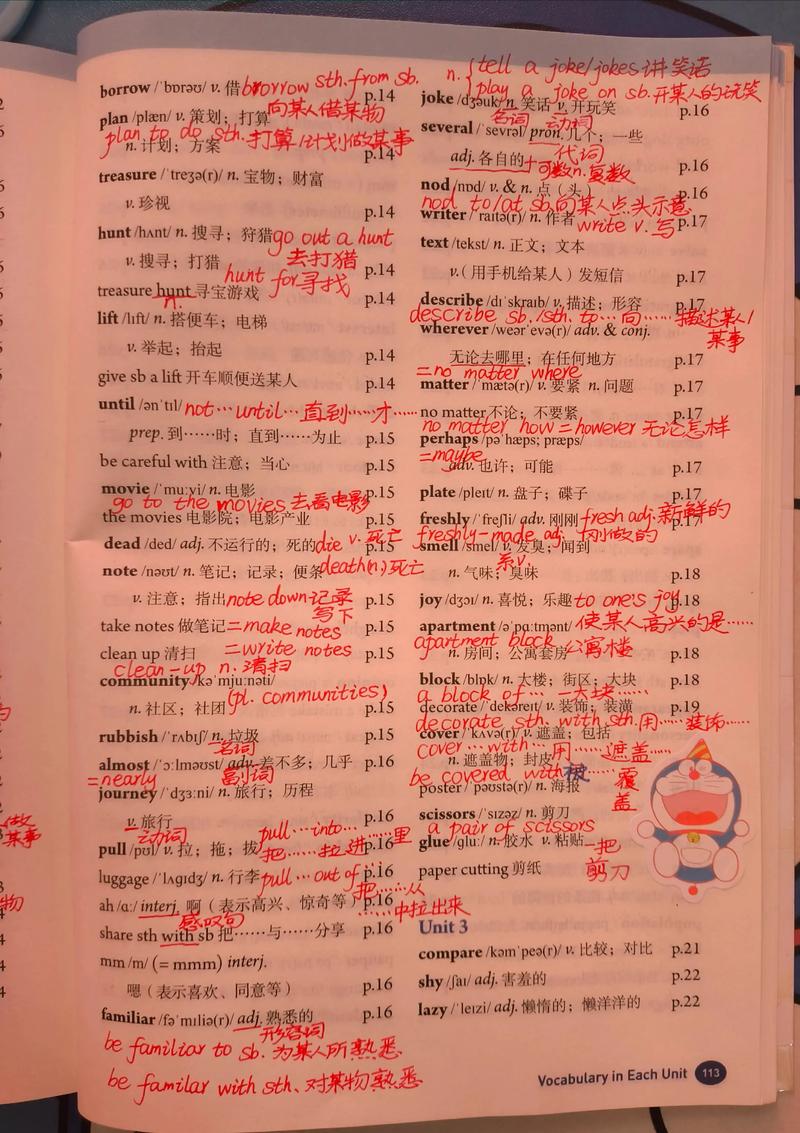 borrow /ˈbɒrəʊ/ v. 借 brorrow sth. from sb.
p.14
向某人借某物
plan /plæn/ v. 策划；打算
plan to do sth. 打算/计划做某事
n. 计划；方案
p.14
treasure /ˈtreʒə(r)/ n. 宝物；财富
v. 珍视
p.14
hunt /hʌnt/ n. 搜寻；狩猎 go out a hunt
去打猎
v. 搜寻；打猎
p.14
hunt for 寻找
treasure hunt 寻宝游戏
p.14
n.
lift /lɪft/ n. 搭便车；电梯
v. 举起；抬起
p.14
give sb a lift 开车顺便送某人
p.14
until /ənˈtɪl/ not…until…直到…才……
prep. 到……时；直到……为止
p.15
be careful with 注意；当心
p.15
movie /ˈmuːvi/ n. 电影
p.15
go to the movies 去看电影
the movies 电影院；电影产业
p.15
dead /ded/ adj. 不运行的；死的 die v. 死亡
p.15
note /nəʊt/ n. 笔记；记录；便条 death(n.)死亡
v. 注意；指出 note down 记录
p.15
写下
take notes 做笔记 = make notes
p.15
clean up 清扫 = write notes
p.15
clean-up n. 清扫
community /kəˈmjuːnəti/
(pl. communities)
n. 社区；社团
p.15
rubbish /ˈrʌbɪʃ/ n. 垃圾
p.15
名词
almost /ˈɔːlməʊst/ adv. 差不多；几乎
p.16
=nearly
副词
journey /ˈdʒɜːni/ n. 旅行；历程
v. 旅行
p.16
动词
pull…into…
把……拉进…里
pull /pʊl/ v. 拉；拖；拔
p.16
luggage /ˈlʌɡɪdʒ/ n. 行李 pull…out of…
p.16
把……从
……中拉出来
ah /ɑː/ interj. 啊（表示高兴、惊奇等）
p.16
感叹句
share sth with sb 把……与……分享
p.16
mm /m/ (= mmm) interj.
嗯（表示喜欢、同意等）
p.16
familiar /fəˈmɪliə(r)/ adj. 熟悉的
p.16
形容词
be familiar to sb. 为某人所熟悉
be familar with sth. 对某物熟悉
n. { tell a joke/jokes 讲笑话
play a joke on sb. 开某人的玩笑
joke /dʒəʊk/ n. 笑话 v. 开玩笑
p.16
名词 动词
several /ˈsevrəl/ pron. 几个；一些
代词
adj. 各自的 + 可数n.复数
p.16
nod /nɒd/ v. & n. 点（头）
p.16
nod to/at sb. 向某人点头示意
writer /ˈraɪtə(r)/ n. 作者
p.17
write v. 写
text /tekst/ n. 正文；文本
v.（用手机给某人）发短信
p.17
describe /dɪˈskraɪb/ v. 描述；形容
p.17
describe sb./sth. to…向……描述某人/
某事
wherever /weərˈevə(r)/ adv. & conj.
无论去哪里；在任何地方
p.17
=no matter where
matter /ˈmætə(r)/ v. 要紧 n. 问题
p.17
no matter 不论；不要紧
p.17
no matter how = however 无论怎样
perhaps /pəˈhæps; præps/
=maybe
adv. 也许；可能
p.17
plate /pleɪt/ n. 盘子；碟子
p.17
freshly /ˈfreʃli/ adv. 刚刚 fresh adj. 新鲜的
p.17
freshly-made adj. 刚做的
smell /smel/ v. 发臭；闻到
系v.
n. 气味；臭味
p.18
joy /dʒɔɪ/ n. 喜悦；乐趣 to one's joy
p.18
使某人高兴的是……
apartment /əˈpɑːtmənt/
apartment block 公寓楼
n. 房间；公寓套房
p.18
block /blɒk/ n. 大楼；街区；大块
p.18
a block of … 一大块……
decorate /ˈdekəreɪt/ v. 装饰；装潢
p.19
decorate sth. with sth. 用…装饰……
cover /ˈkʌvə(r)/ v. 遮盖；包括
cover…with…用……遮盖……
n. 遮盖物；封皮
be covered with 被……覆盖
poster /ˈpəʊstə(r)/ n. 海报
scissors /ˈsɪzəz/ n. 剪刀
a pair of scissors
一把剪刀
glue /ɡluː/ n. 胶水 v. 粘贴
paper cutting 剪纸
Unit 3
compare /kəmˈpeə(r)/ v. 比较；对比
p.21
shy /ʃaɪ/ adj. 害羞的
p.22
lazy /ˈleɪzi/ adj. 懒惰的；懒洋洋的
p.22
Vocabulary in Each Unit 113